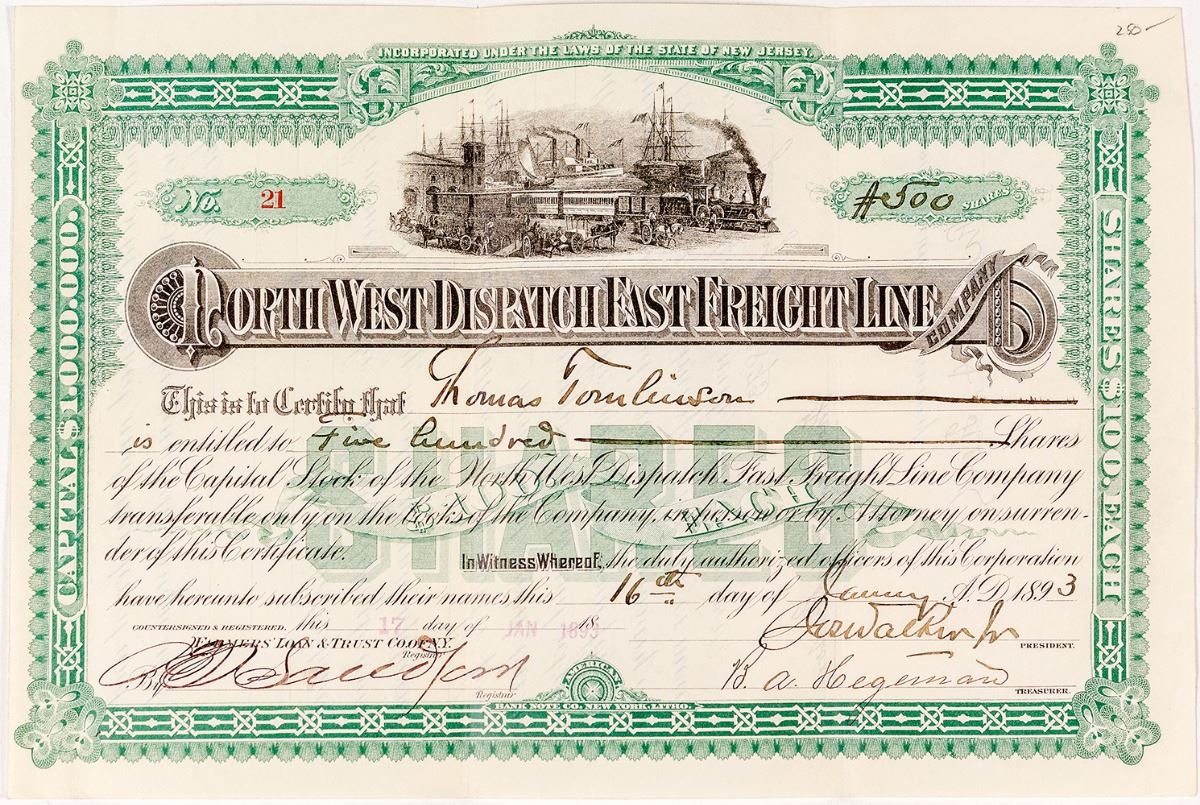 250—
INCORPORATED UNDER THE LAWS OF THE STATE OF NEW JERSEY.
No. 21
#500 SHARES
CAPITAL $1.000.000.
SHARES $100. EACH
NORTH WEST DISPATCH FAST FREIGHT LINE COMPANY
This is to Certify that Thomas Tomlinson
is entitled to Five hundred Shares
of the Capital Stock of the North West Dispatch Fast Freight Line Company
transferable only on the Books of the Company, in person or by Attorney on surren-
der of this Certificate.
SHARES
$100 EACH
In Witness Whereof, the duly authorized officers of this Corporation
have hereunto subscribed their names this 16th day of January A.D. 1893
COUNTERSIGNED & REGISTERED, this 17 day of JAN 1893 18
FARMERS' LOAN & TRUST CO. OF N.Y.
Registrar
By
Registrar
PRESIDENT.
B. A. Hegeman
TREASURER.
AMERICAN
BANK NOTE CO. NEW YORK. LITHO.